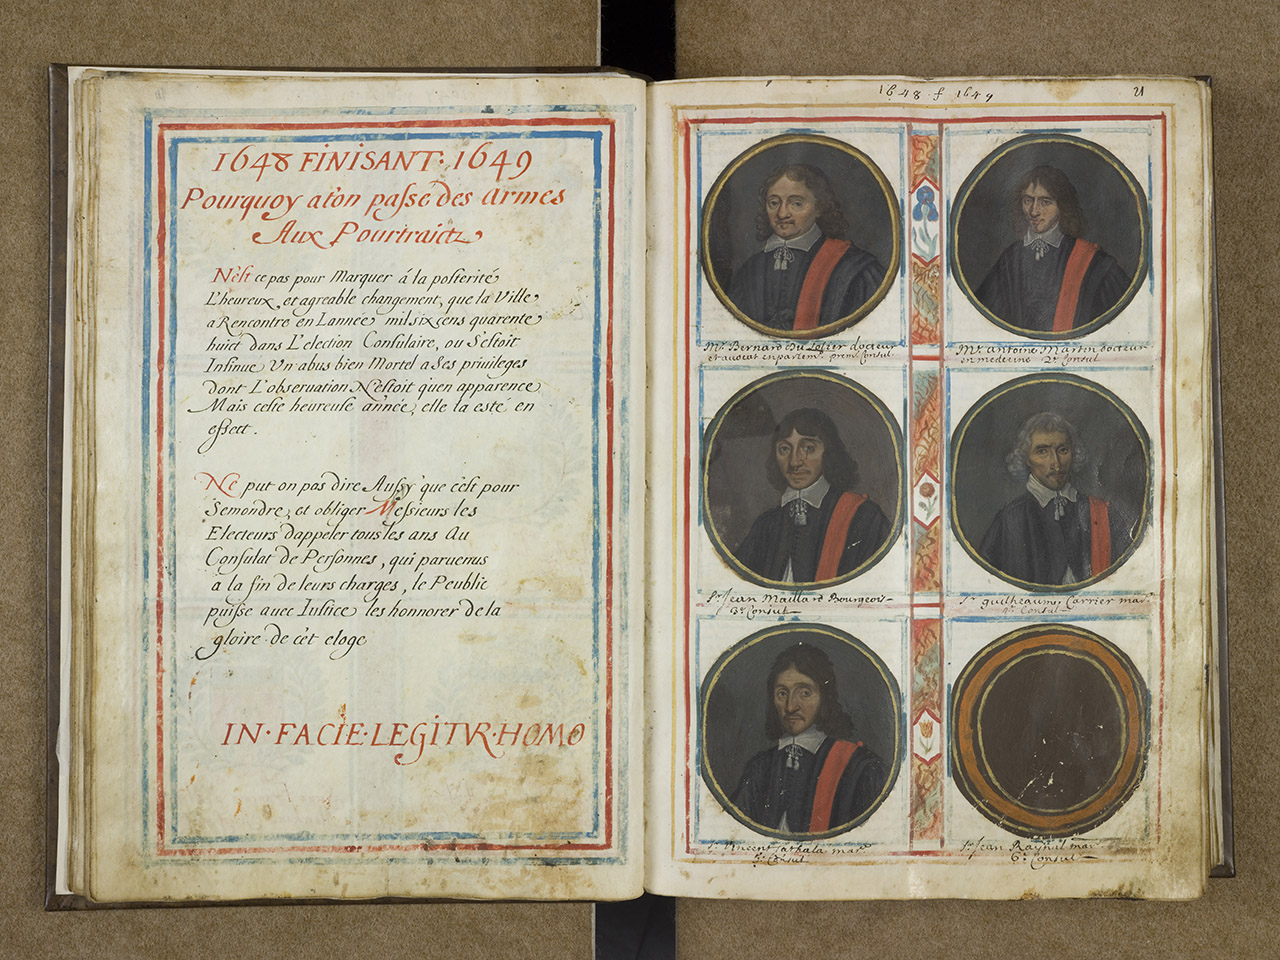 1648 FINISANT · 1649
Pourquoy at'on passé des armes
Aux Pourtraictz
N'est ce pas pour Marquer á la posterité
L'heureux et agreable changement, que la Ville
a Rencontre en Lannée mil six cens quarente
huict dans L'election Consulaire, ou S'estoit
Insinué Vn abus bien Mortel a Ses priuileges
dont L'obseruation N'estoit qu'en apparence
Mais ceste heureuse année, elle la esté en
effect.
Ne put on pas dire Aussy que c'est pour
Semondre, et obliger Messieurs les
Electeurs d'appeler tous les ans Au
Consulat de Personnes, qui paruenus
a la fin de leurs charges, le Peublic
puisse auec Iustice les honnorer de la
gloire de cét eloge
IN · FACIE · LEGITVR · HOMO
1648 · f 1649
21
Mr. Bernard Du docteur
et auocat en parlemt. premr. Consul.
Mr. antoine Martin docteur
en medecine 2e. Consul
Sr. Jean Maillard Bourgeois
3e. Consul
Sr. guilheaume Carrier mar
4e. Consul
Sr. Vincent Sathala mar
5e. Consul
Sr. Jean mar
6e. Consul